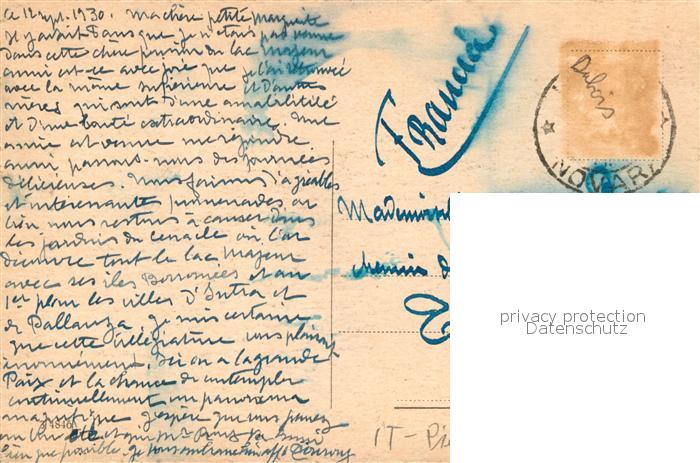 ce 12 sept. 1930. ma chère petite marguerite
il y avait 8 ans que je n'étais pas venue
dans cette chère maison du lac majeur
aussi est-ce avec joie que je l'ai retrouvée
avec la même supérieure et d'autres
mères qui sont d'une amabilité
et d'une bonté extraordinaire. Une
amie est venue me rejoindre
aussi passons-nous des journées
délicieuses. Nous faisons d'agréables
et intéressantes promenades ou
bien nous restons à causer dans
les jardins du cenacle où l'on
découvre tout le lac majeur
avec ses îles Borromées et au
1er plan les villes d'Intra et
de Pallanza. je suis certaine
que cette villégiature vous plairait
énormément. Ici on a la grande
Paix et la chance de contempler
continuellement un panorama
magnifique. j'espère que vous passez
un bon été et que
bien que possible. je vous embrasse
France
Dubois
NOVARA
chemin
privacy protection
Datenschutz
IT-Pie